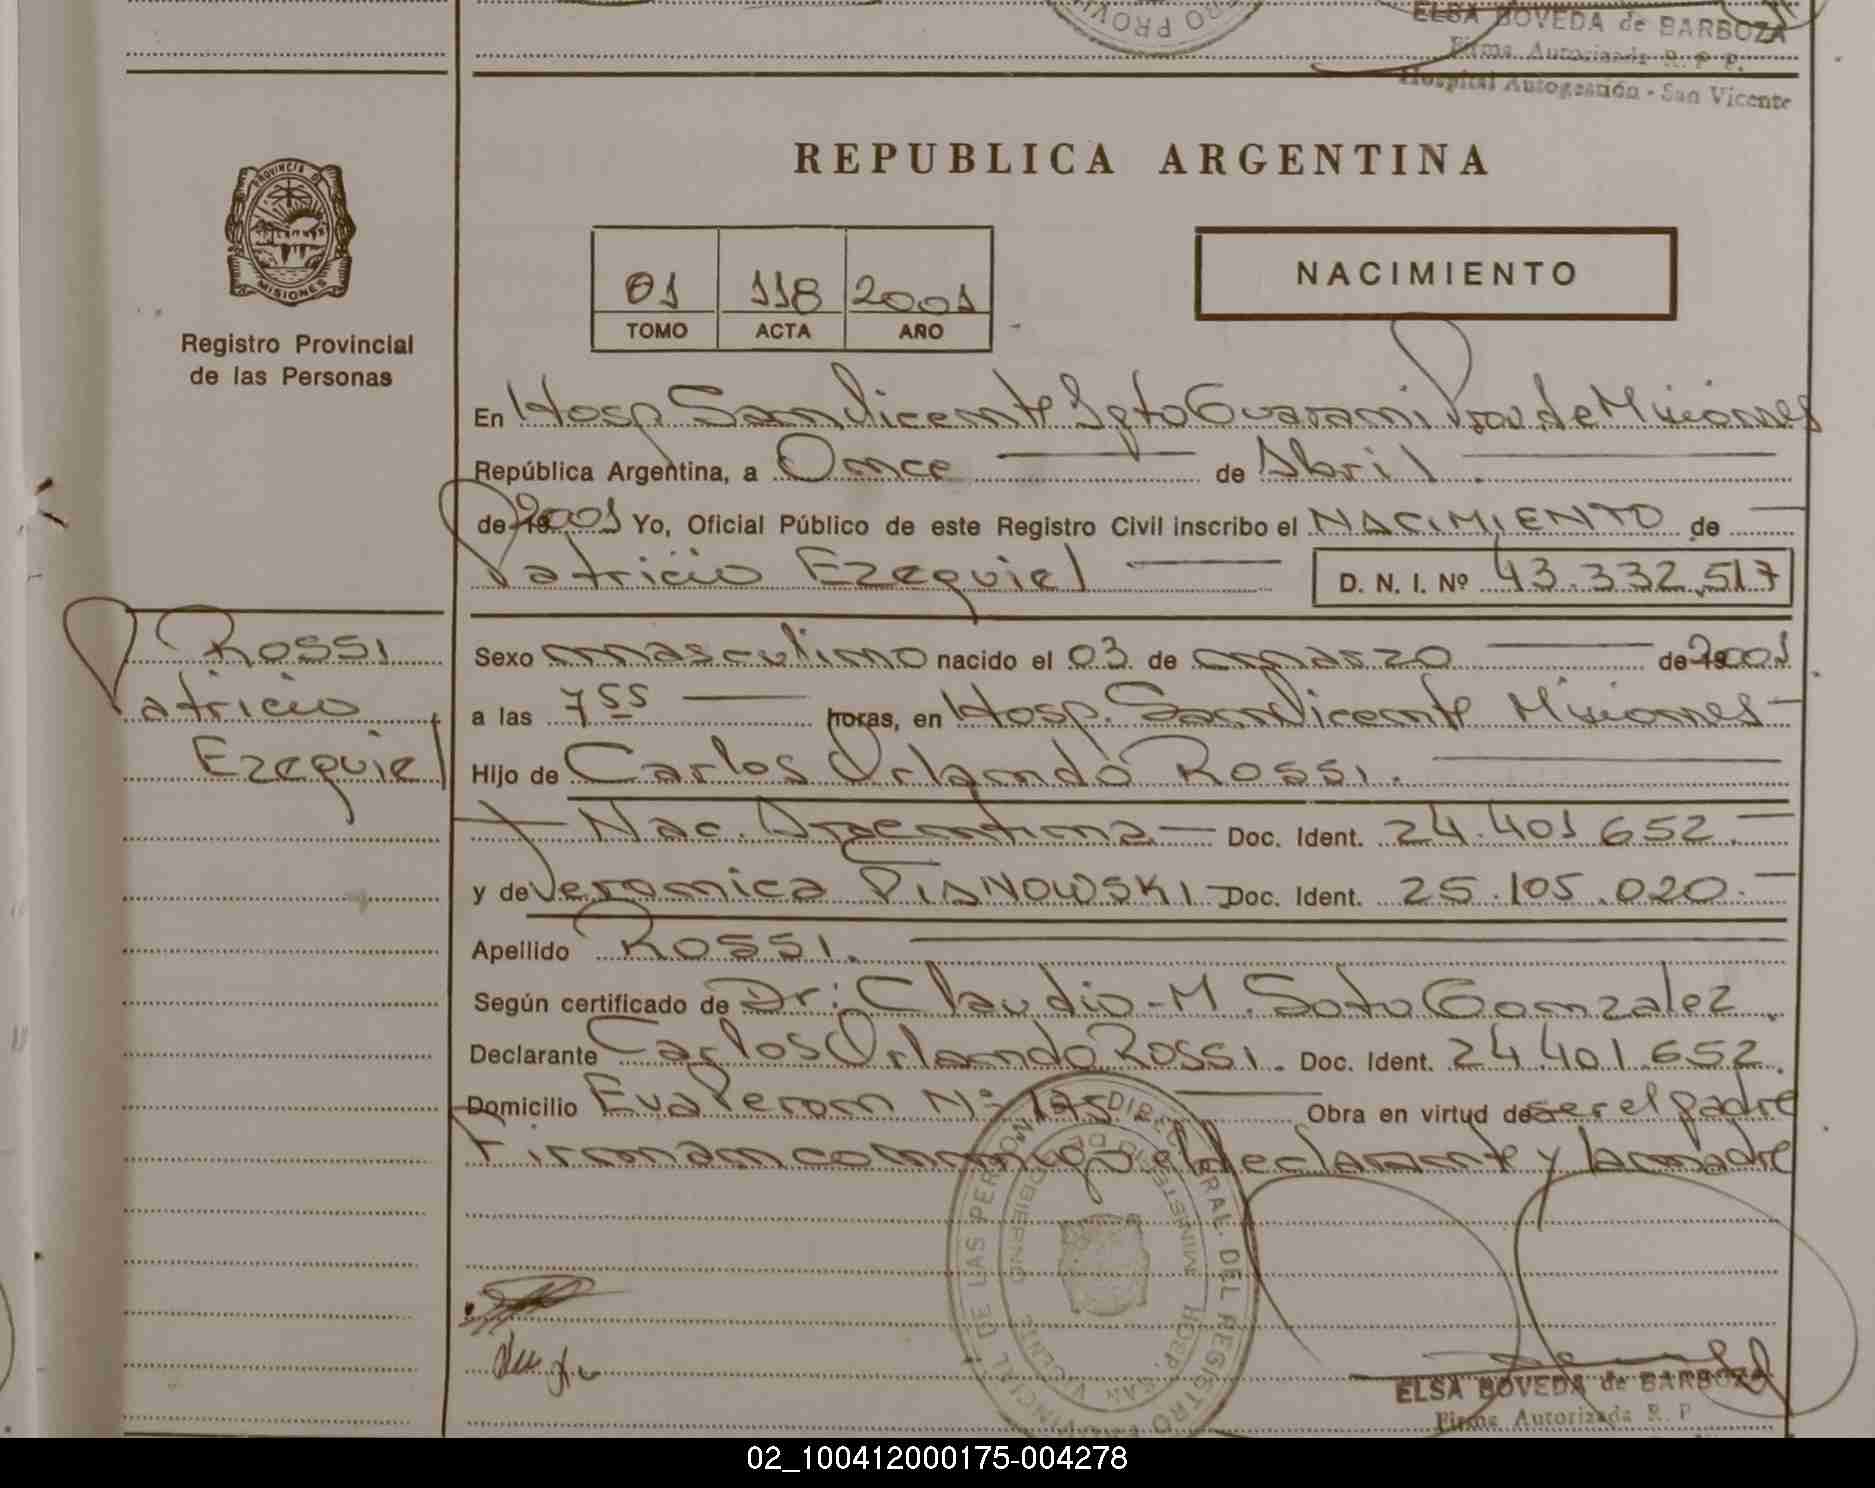 ELSA BOVEDA de BARBOZA
Firma Autorizada R. P. P.
Hospital Autogestión - San Vicente
PROVINCIA DE
MISIONES
Registro Provincial
de las Personas
REPUBLICA ARGENTINA
01 118 2001
TOMO ACTA AÑO
NACIMIENTO
En Hosp. San Vicente Dpto Guarani Prov. de Misiones
República Argentina, a Once de Abril
de 19 2001 Yo, Oficial Público de este Registro Civil inscribo el NACIMIENTO de
Patricio Ezequiel D. N. I. Nº 43.332.517
Rossi
Patricio
Ezequiel
Sexo masculino nacido el 03 de marzo de 19 2001
a las 7 55 horas, en Hosp. San Vicente Misiones
Hijo de Carlos Orlando Rossi.
Nac. Argentina Doc. Ident. 24.401.652.
y de Veronica PIANOWSKI Doc. Ident. 25.105.020.
Apellido Rossi.
Según certificado de Dr: Claudio M. Soto Gonzalez.
Declarante Carlos Orlando Rossi. Doc. Ident. 24.401.652.
Domicilio Eva Peron Nº 175 Obra en virtud de ser el padre
Firman conmigo el declarante y la madre
DIRECCION GENERAL DEL REGISTRO PROVINCIAL DE LAS PERSONAS
MINISTERIO DE GOBIERNO
HOSP. SAN VICENTE
ELSA BOVEDA de BARBOZA
Firma Autorizada R. P
02_100412000175-004278